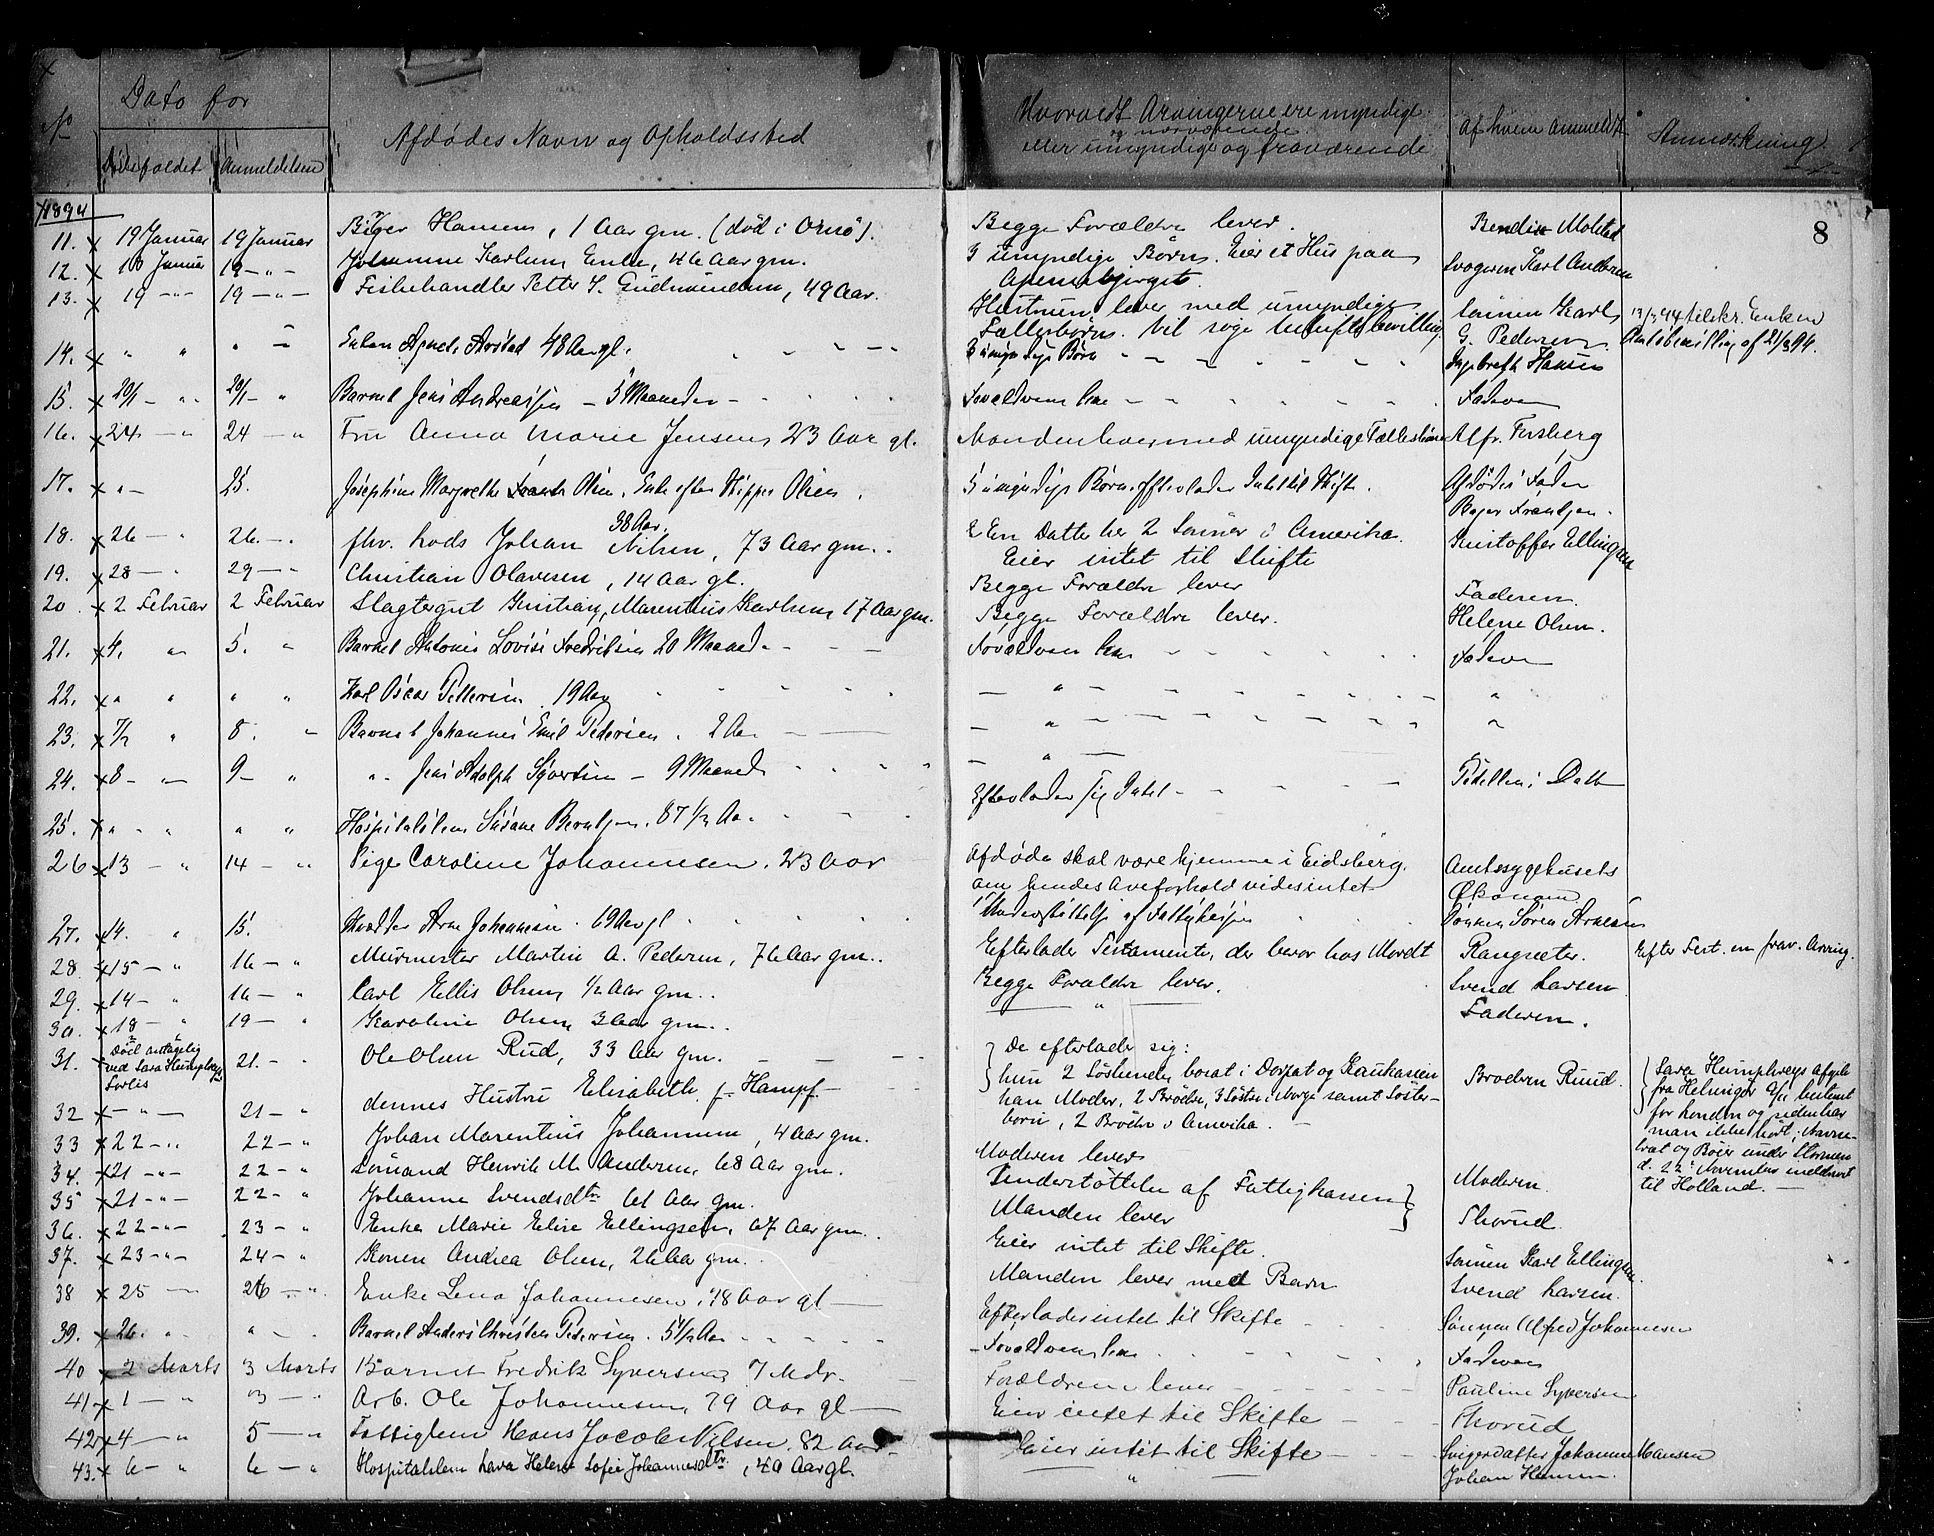 No
Dato for
Dødsfaldet
Anmeldelsen
Afdødes Navn og Opholdssted
Hvorvidt Arvingerne ere myndige
og nærværende
eller umyndige og fraværende
Af hvem anmeldt
Anmærkning
8
1894
11. 19 Januar 19 Januar Birger Hansen, 1 Aar gm. (død i Ornö). Begge Forældre lever. Bendix Molstad
12. 18 Januar 19 - " - Johanne Karlsen Enke, 46 Aar gm. 3 umyndige Børn. Eier et Hus paa Svogeren Karl Andersen
Apenesbjerget.
13. 19 - " - 19 - " - Fiskehandler Petter S. Gudmundsen, 49 Aar. Hustruen lever med umyndige Sønnen Karl 13/3 94 tilskr. Enken
Fællesbørn. Vil søge Uskiftebevilling. G. Pedersen. Amtsbevilling af 21/3 94.
14. " " " - Enken Agnete Arstad 48 Aar gl. 3 umyndige Børn Ingebreth Hansen
15. 20/1 - " - 20/1 - " Barnet Jens Andreassen - 5 Maaneder - Forældrene leve Faderen
16. 24 - " 24 - " Fru Anna Marie Jensen, 23 Aar gl. Manden lever med umyndige Fællesbørn Alfr. Forsberg
17. " - 25. Josephine Margrethe Olsen, Enke efter Skipper Olsen. 5 umyndige Børn. Efterlader Intet til Skifte. Afdødes Fader
38 Aar. Bojer Frantzen.
18. 26 - " 26. - " fhv. Lods Johan Nilsen, 73 Aar gm. En Datter her, 2 Sønner i Amerika. Kristoffer Ellingsen
Eier intet til Skifte
19. 28 - " 29 - " Christian Olavesen, 14 Aar gl. Begge Forældre lever Faderen.
20. 2 Februar 2 Februar Slagtergut Kristian Marentius Karlsen, 17 Aar gm. Begge Forældre lever. Helene Olsen.
21. 4. " 5. " Barnet Antonie Lovise Fredriksen 20 Maaned. Forældrene leve Faderen
22. " " " " Karl Oscar Pettersen 19 Aar - " - "
23. 7/2 " 8. " Barnet Johannes Emil Pedersen. 2 Aar - " - "
24. 8 - " - 9 - " " Jens Adolph Syvertsen - 9 Maaned - " -
25. " - " " " Hospitalslem Susane Berntsen. 87 1/2 Aar Efterlader sig Intet - Datter
26 13 - " 14 - " Pige Caroline Johannesen. 23 Aar Afdøde skal være hjemme i Eidsberg. Amtssygehusets
om hendes Arveforhold vides intet Økonom
27. 14. " 15. Skrædder Arne Johannesen. 69 Aar gl Understøttelse af Fattigkassen Sønnen Søren Arnesen
28. 15 - " 16 - " Murmester Martin A. Pedersen, 76 Aar gm. Efterlader Testamente, der beror hos Mordt Rangsæter. Efter Test. en frav. Arving.
29. 14 - " 16 - " Carl Ellis Olsen, 1/2 Aar gm. Begge Forældre lever. Svend Larsen
30. 18 - " 19 - " Karoline Olsen, 3 Aar gm. " Faderen.
31. Død antagelig
ved Sara Humphreys
Forlis
21. - " Ole Olsen Rud, 33 Aar gm. De efterlade sig: Broderen Ruud.
hun 2 Søskende bosat i Dorpat og Kaukasien
han Moder, 2 Brødre, 3 Søstre i Norge samt Søster-
børn, 2 Brødre i Amerika.
Sara Humphreys afgik
fra Helsingør 9/11 bestemt
for London og siden har
man ikke hørt; Navne-
bræt og Bøier under Stormen
d. 22 November inddrevet
til Holland. -
32 - " - 21 - " dennes Hustru Elisabeth f. Hampf.
33 22 - " 22 - " Johan Marentius Johannesen, 4 Aar gm. Moderen lever Moderen.
34. 21 - " - 22 - " Sømand Henrik M. Andersen, 68 Aar gm. Understøttelse af Fattigkassen Thorud.
35 21 - " - 22 - " Johanne Svendsdtr 61 Aar gm. Manden lever
36. 22 - " - 23 - " Enke Marie Elise Ellingsen, 67 Aar gm. Eier intet til Skifte. Sønnen Karl Ellingsen
37. 23 - " - 24 - " Konen Andrea Olsen, 26 Aar gm. Manden lever med Barn Svend Larsen.
38 25 - " - 26 - " Enke Lena Johannesen, 48 Aar gl Efterlades intet til Skifte Sønnen Alfred Johannesen
39. 26. " " - Barnet Anders Christen Pedersen. 5 1/2 Aar Forældrene leve Faderen
40 2 Marts 3 Marts Barnet Fredrik Syversen 7 Mdr. Forældrene lever Pauline Syversen
41 1 - " 3 - " Arb. Ole Johannesen, 79 Aar gl Eier intet til Skifte Thorud
42 4 - " 5 - " Fattiglem Hans Jacob Nilsen. 82 Aar Eier intet til Skifte Svigerdatter Johanne Hansen
43. 6 - " 6 - " Hospitalslem Lava Helene Sofie Johannesdtr, 40 Aar gl. " Johan Hansen.